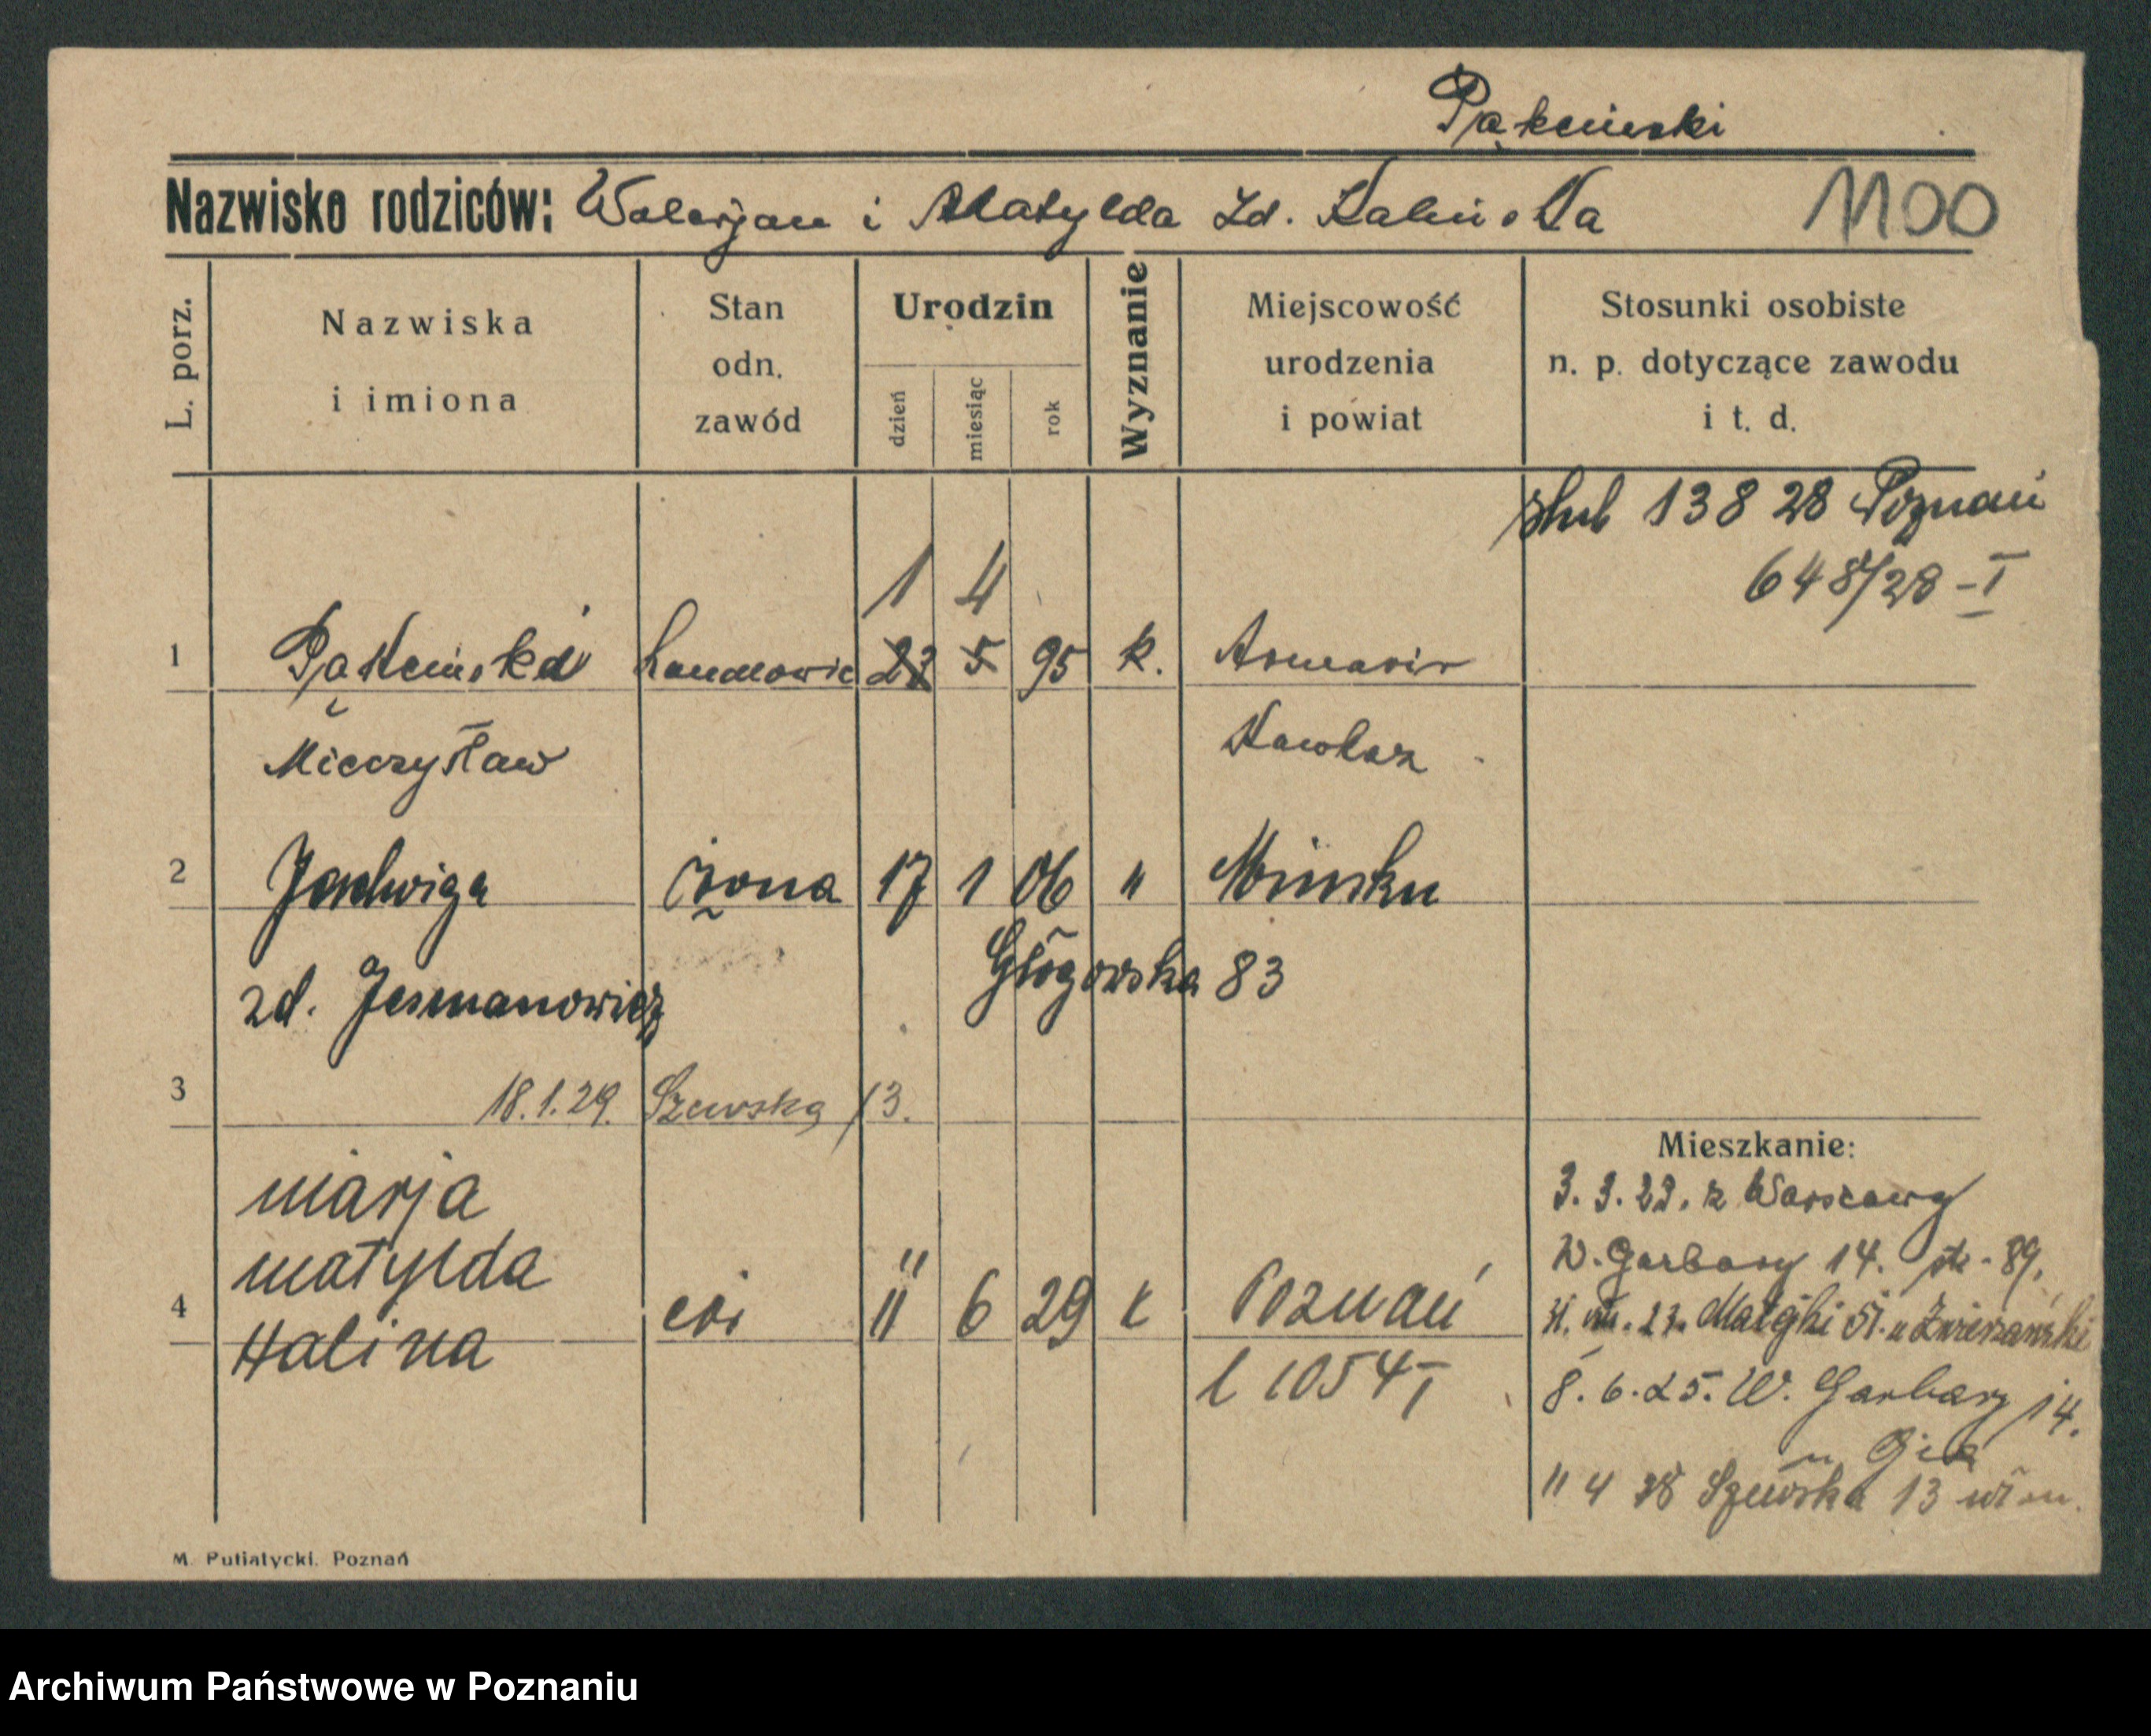 Nazwisko rodziców: Walerjan i Matylda zd. Kalinska 1100
L. porz.
Nazwiska i imiona
Stan odn. zawód
Urodzin
dzień
miesiąc
rok
Wyznanie
Miejscowość urodzenia i powiat
Stosunki osobiste n. p. dotyczące zawodu i t. d.
ślub 13 8 28 Poznań
648/28 - I
1 4
1 23 5 95 k. Armavir
Mieczysław Kawkaz
2 Jadwiga żona 17 1 06 " Mińsku
Głogowska 83
zd. Jesmanowicz
3 18.1.29. Szewska 13.
Mieszkanie:
marja
3. 3. 23. z Warszawy
matylda
W. Garbary 14. 89.
4 Halina 11 6 29 k Poznań
Matejki 51. u
l 1054 I
8. 6. 25. W. Garbary 14.
11 4 28 Szewska 13
M. Putiatycki. Poznań
Archiwum Państwowe w Poznaniu